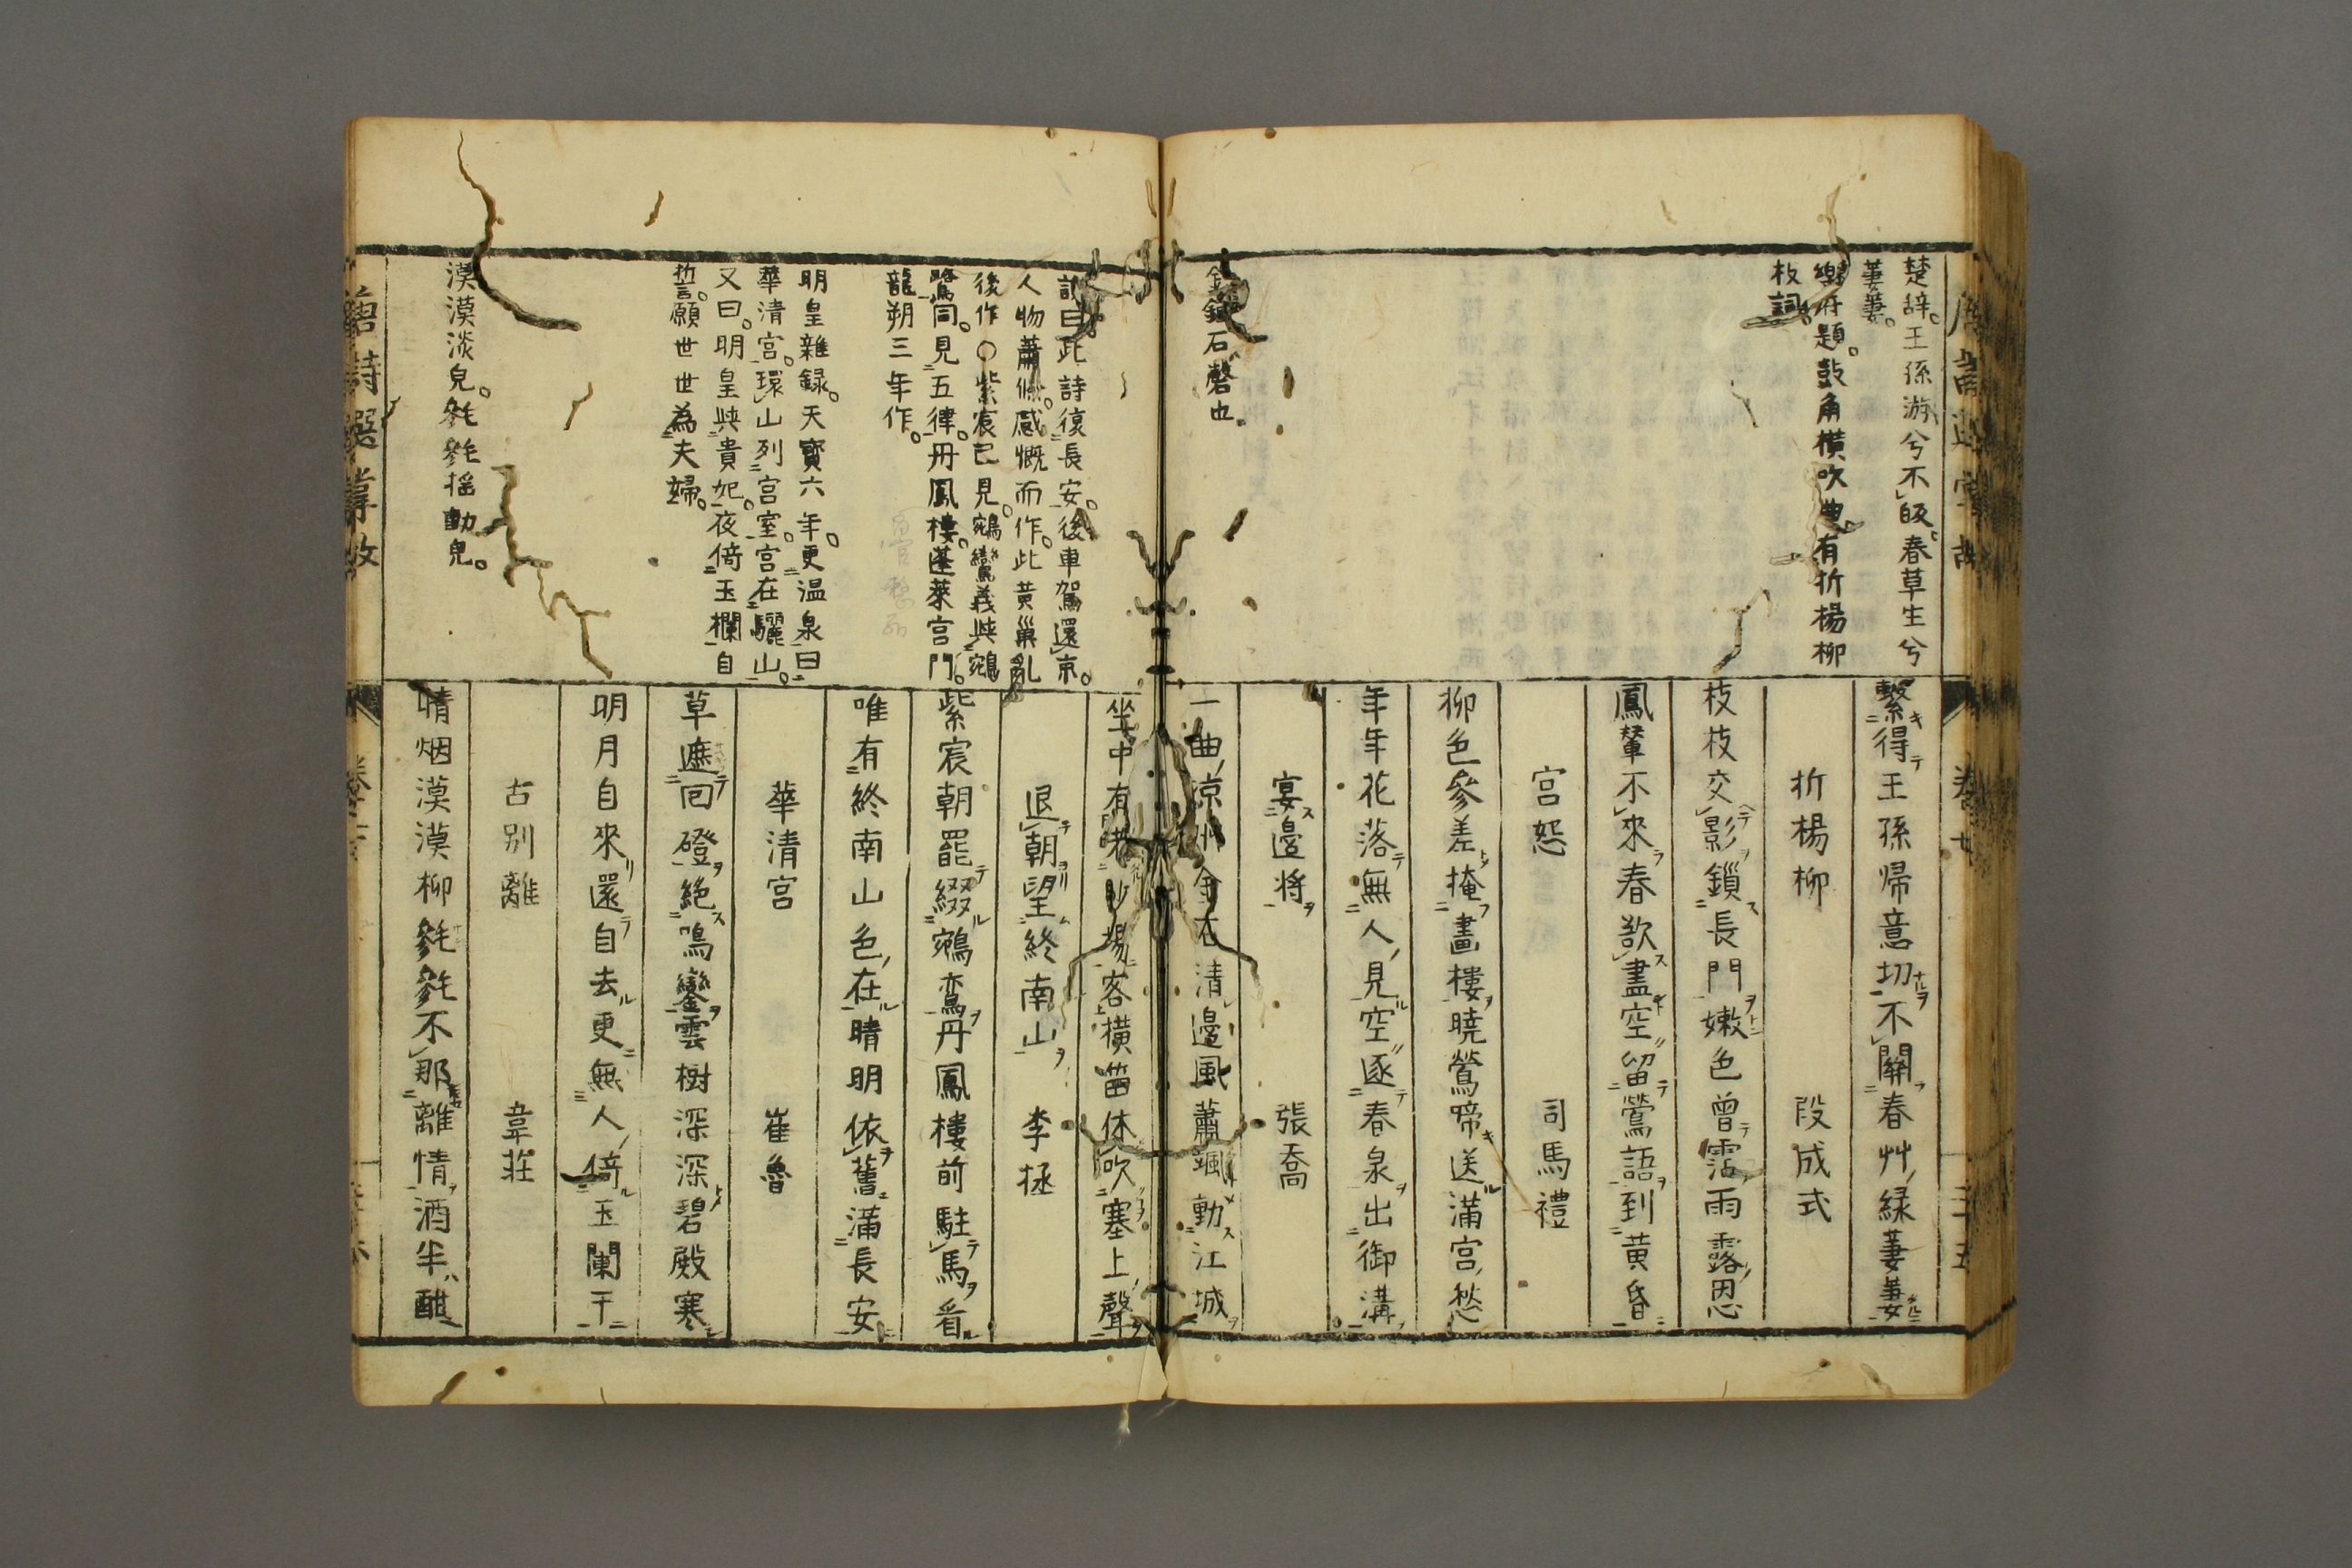 楚辞王孫游兮不皈春草生兮
萋萋
樂府題鼓角横吹曲有折楊柳
枝詞
石磬也
繫得王孫帰意切不關春艸緑萋萋
折楊柳 段成式
枝枝交影鎖長門嫩色曾霑雨露恩
鳳輦不來春欲盡空留鶯語到黄昏
宮怨 司馬禮
柳色參差掩畫樓曉鶯啼送滿宮愁
年年花落無人見空逐春泉出御溝
宴邊将 張喬
一曲凉州金石清邊風蕭颯動江城
訓曰此詩復長安後車駕還京
人物蕭條感慨而作此黄巢乱
後作〇紫宸已見鵷鸞義與鵷
鷺同見五律丹鳳樓蓬萊宮門
龍朔三年作
明皇雜録天寳六年更温泉曰
華清宮環山列宮室宮在驪山
又曰明皇與貴妃夜倚玉欄自
誓願世世為夫婦
漠漠淡皃毿毿揺動皃
坐中有老沙場客横笛休吹塞上聲
退朝望終南山 李拯
紫宸朝罷綴鵷鸞丹鳳樓前駐馬看
唯有終南山色在晴明依舊滿長安
華清宮 崔魯
草遮回磴絶鳴鑾雲樹深深碧殿寒
明月自來還自去更無人倚玉闌干
古別離 韋莊
晴烟漠漠柳毿毿不那離情酒半酣
唐詩選